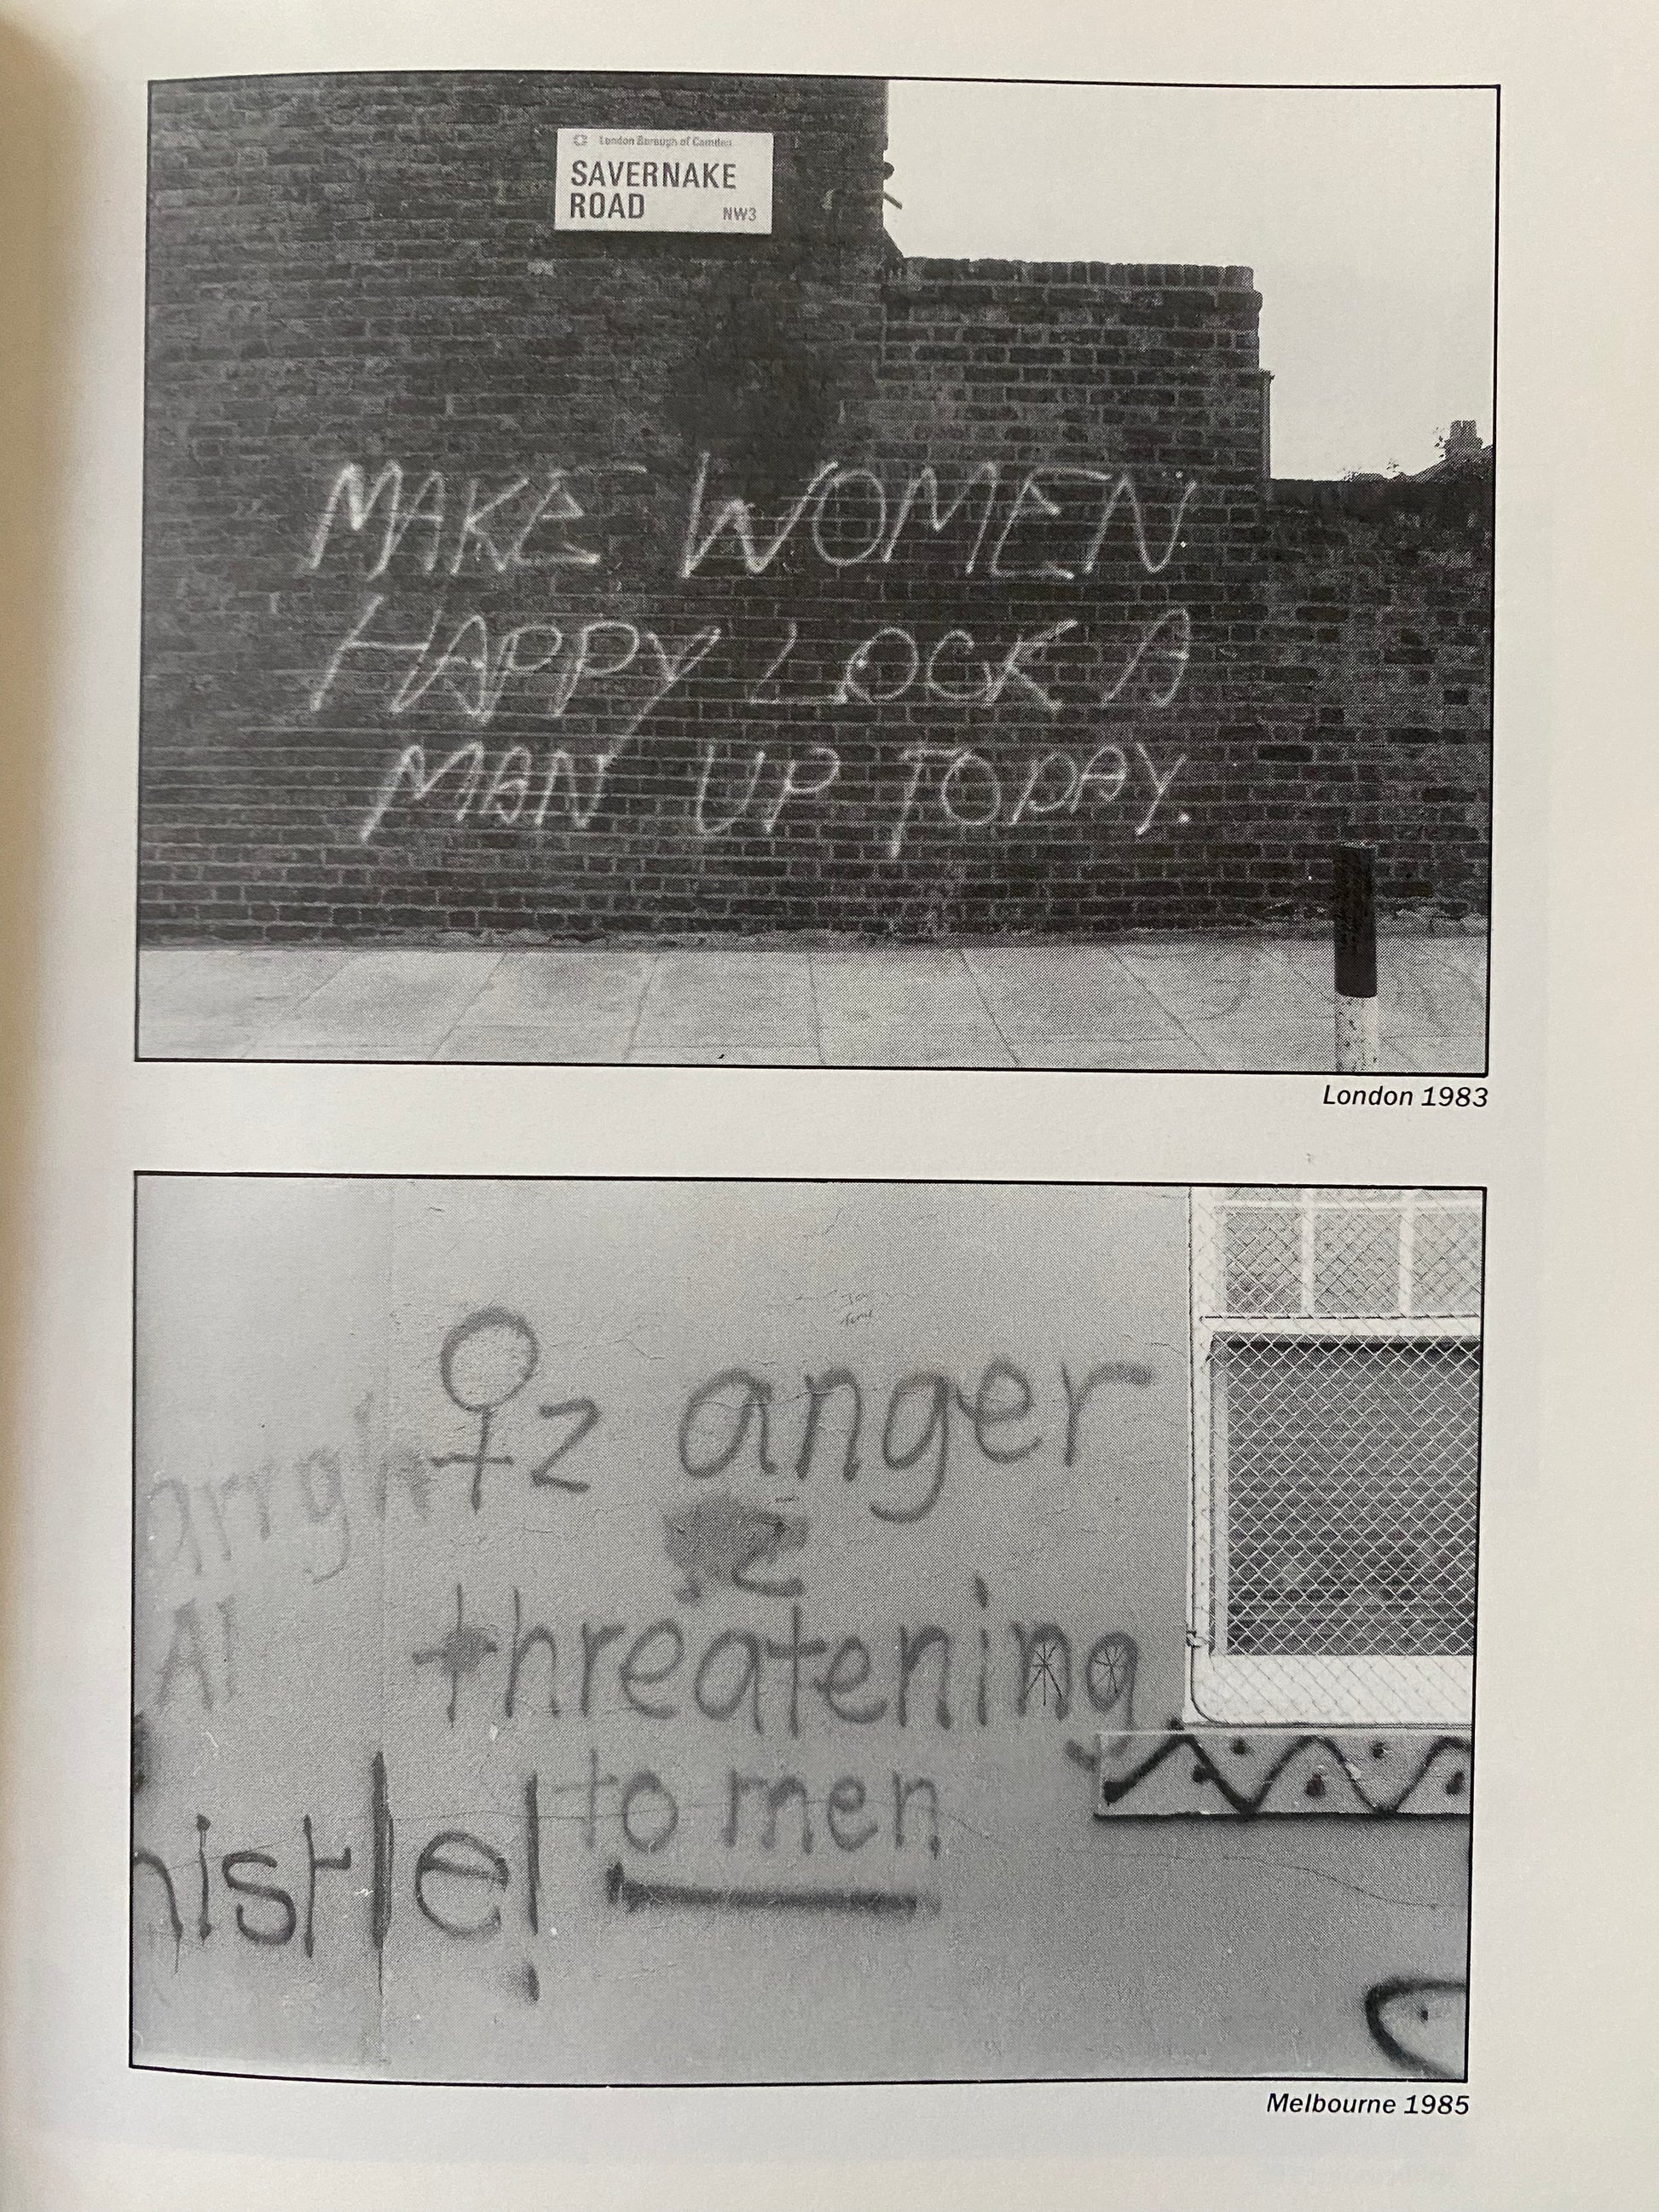 London Borough of Camden
SAVERNAKE
ROAD
NW3
MAKE WOMEN
HAPPY LOCK A
MAN UP TODAY.
London 1983
♀z anger
threatening
to men
Melbourne 1985